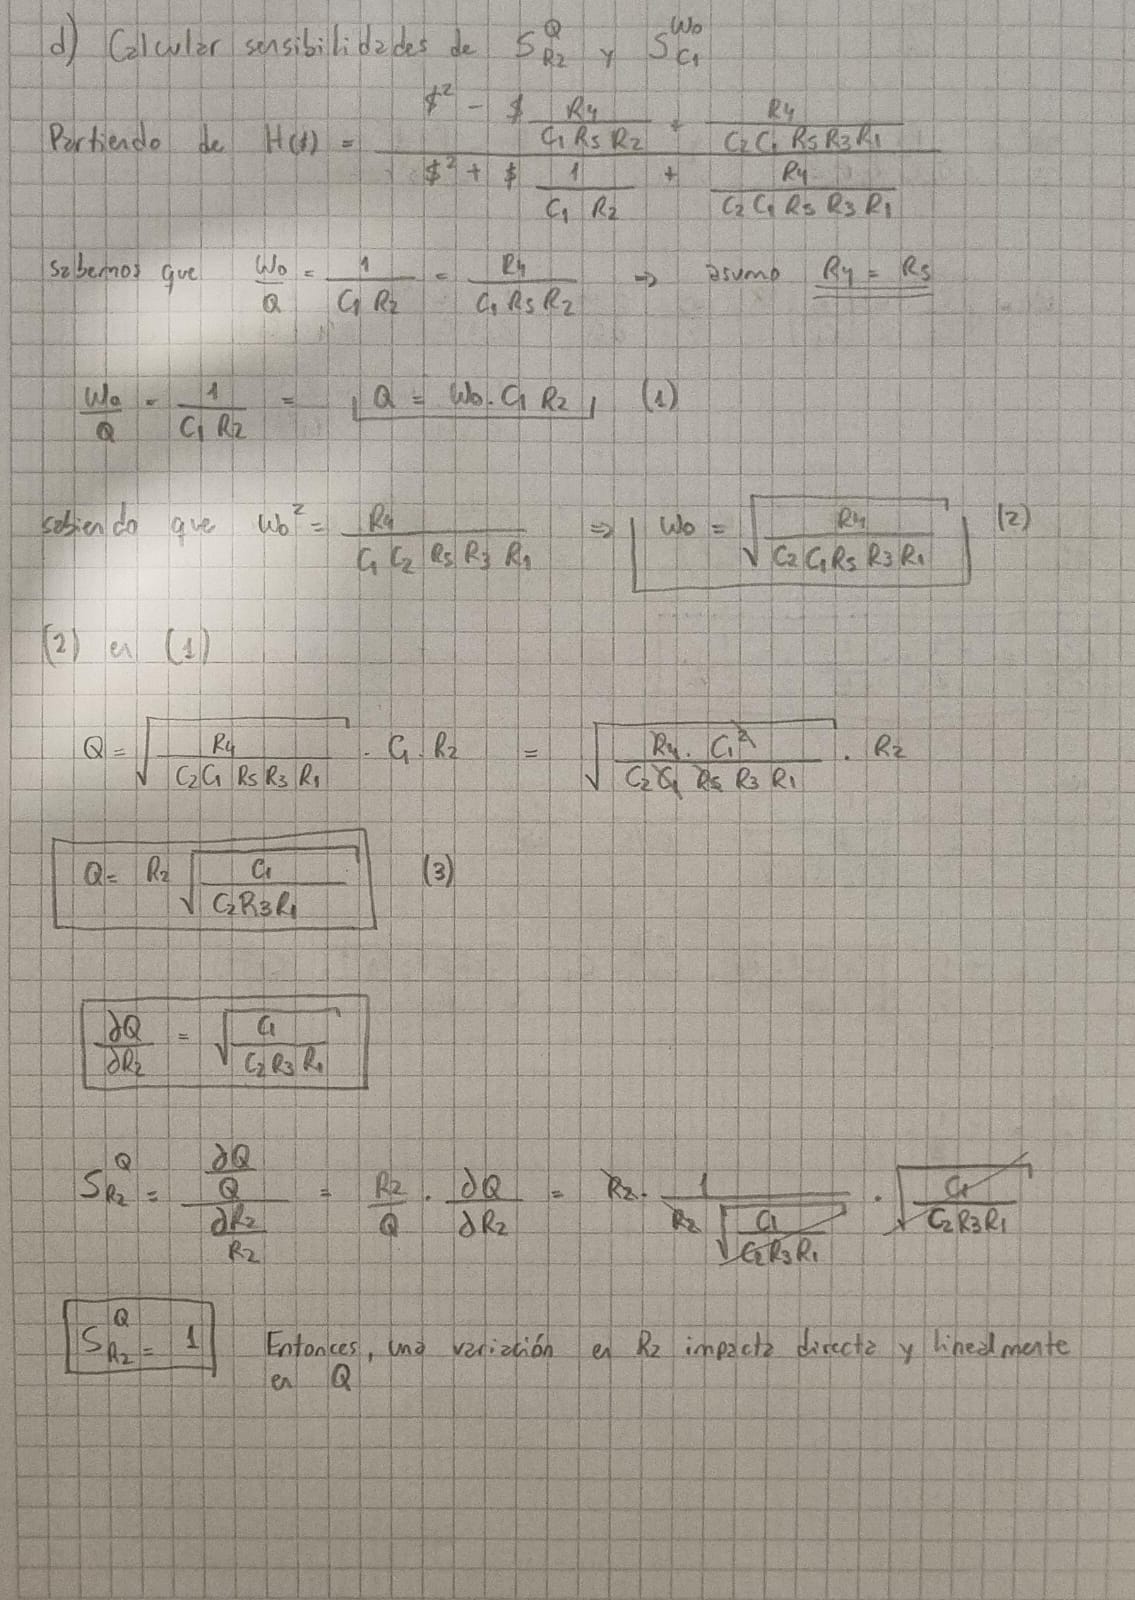 d) Calcular sensibilidades de S_{R2}^{Q} y S_{C1}^{Wo}
Partiendo de H($) = ($² - $ R4/(C1 R5 R2) + R4/(C2 C1 R5 R3 R1)) / ($² + $ 1/(C1 R2) + R4/(C2 C1 R5 R3 R1))
sabemos que Wo/Q = 1/(C1 R2) = R4/(C1 R5 R2) => asumo R4 = R5
Wo/Q = 1/(C1 R2) = Q = Wo. C1 R2 (1)
sabiendo que Wo² = R4/(C1 C2 R5 R3 R1) => Wo = √(R4/(C2 C1 R5 R3 R1)) (2)
(2) en (1)
Q = √(R4/(C2 C1 R5 R3 R1)) . C1 . R2 = √(R4 . C1²/(C2 C1 R5 R3 R1)) . R2
Q = R2 √(C1/(C2 R3 R1)) (3)
∂Q/∂R2 = √(C1/(C2 R3 R1))
S_{R2}^{Q} = (∂Q/Q)/(∂R2/R2) = R2/Q . ∂Q/∂R2 = R2 . 1/(R2 √(C1/(C2 R3 R1))) . √(C1/(C2 R3 R1))
S_{R2}^{Q} = 1 Entonces, una variación en R2 impacta directa y linealmente
en Q